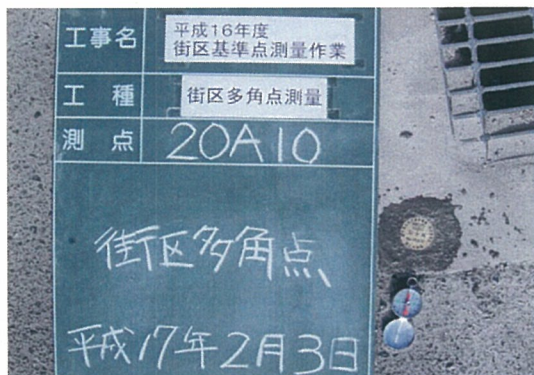 工事名
平成16年度
街区基準点測量作業
工種
街区多角点測量
測点
20A10
街区多角点
平成17年2月3日